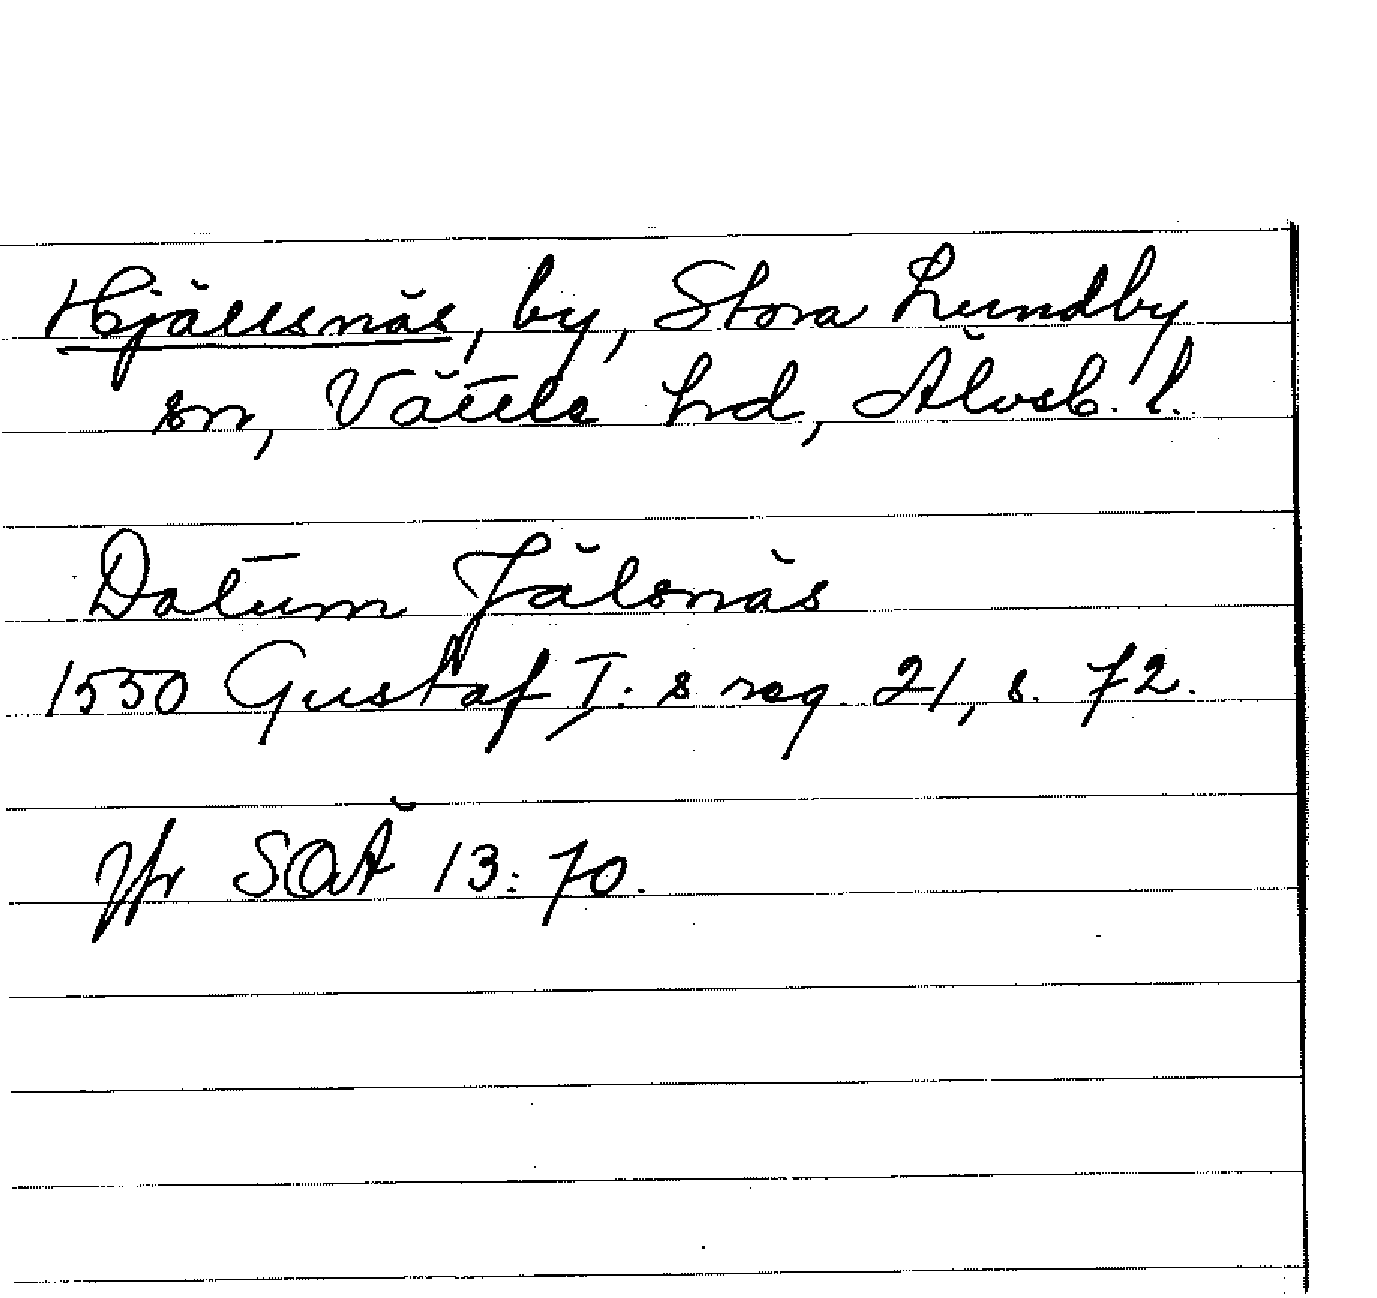 Hjällsnäs, by, Stora Lundby
sn, Vättle hrd, Älvsb. l.
Datum Jälsnäs
1550 Gustaf I: s reg. 21, s. 72.
Jfr SOÄ 13: 70.